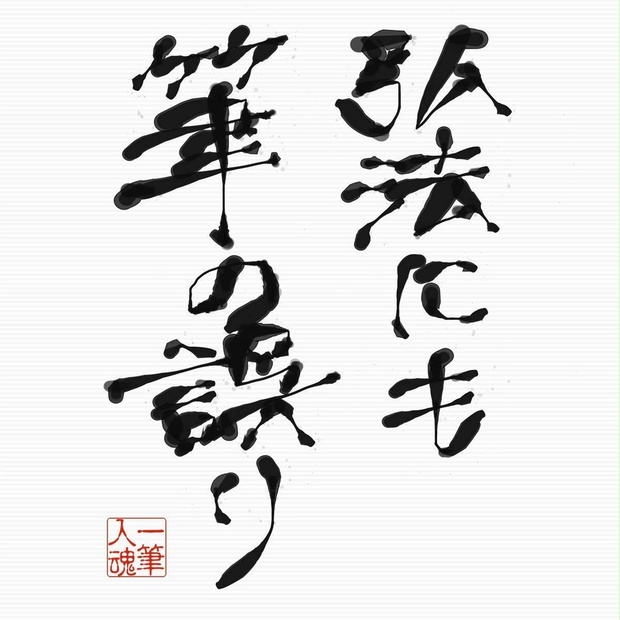 弘法にも
筆の誤り
一筆
入魂